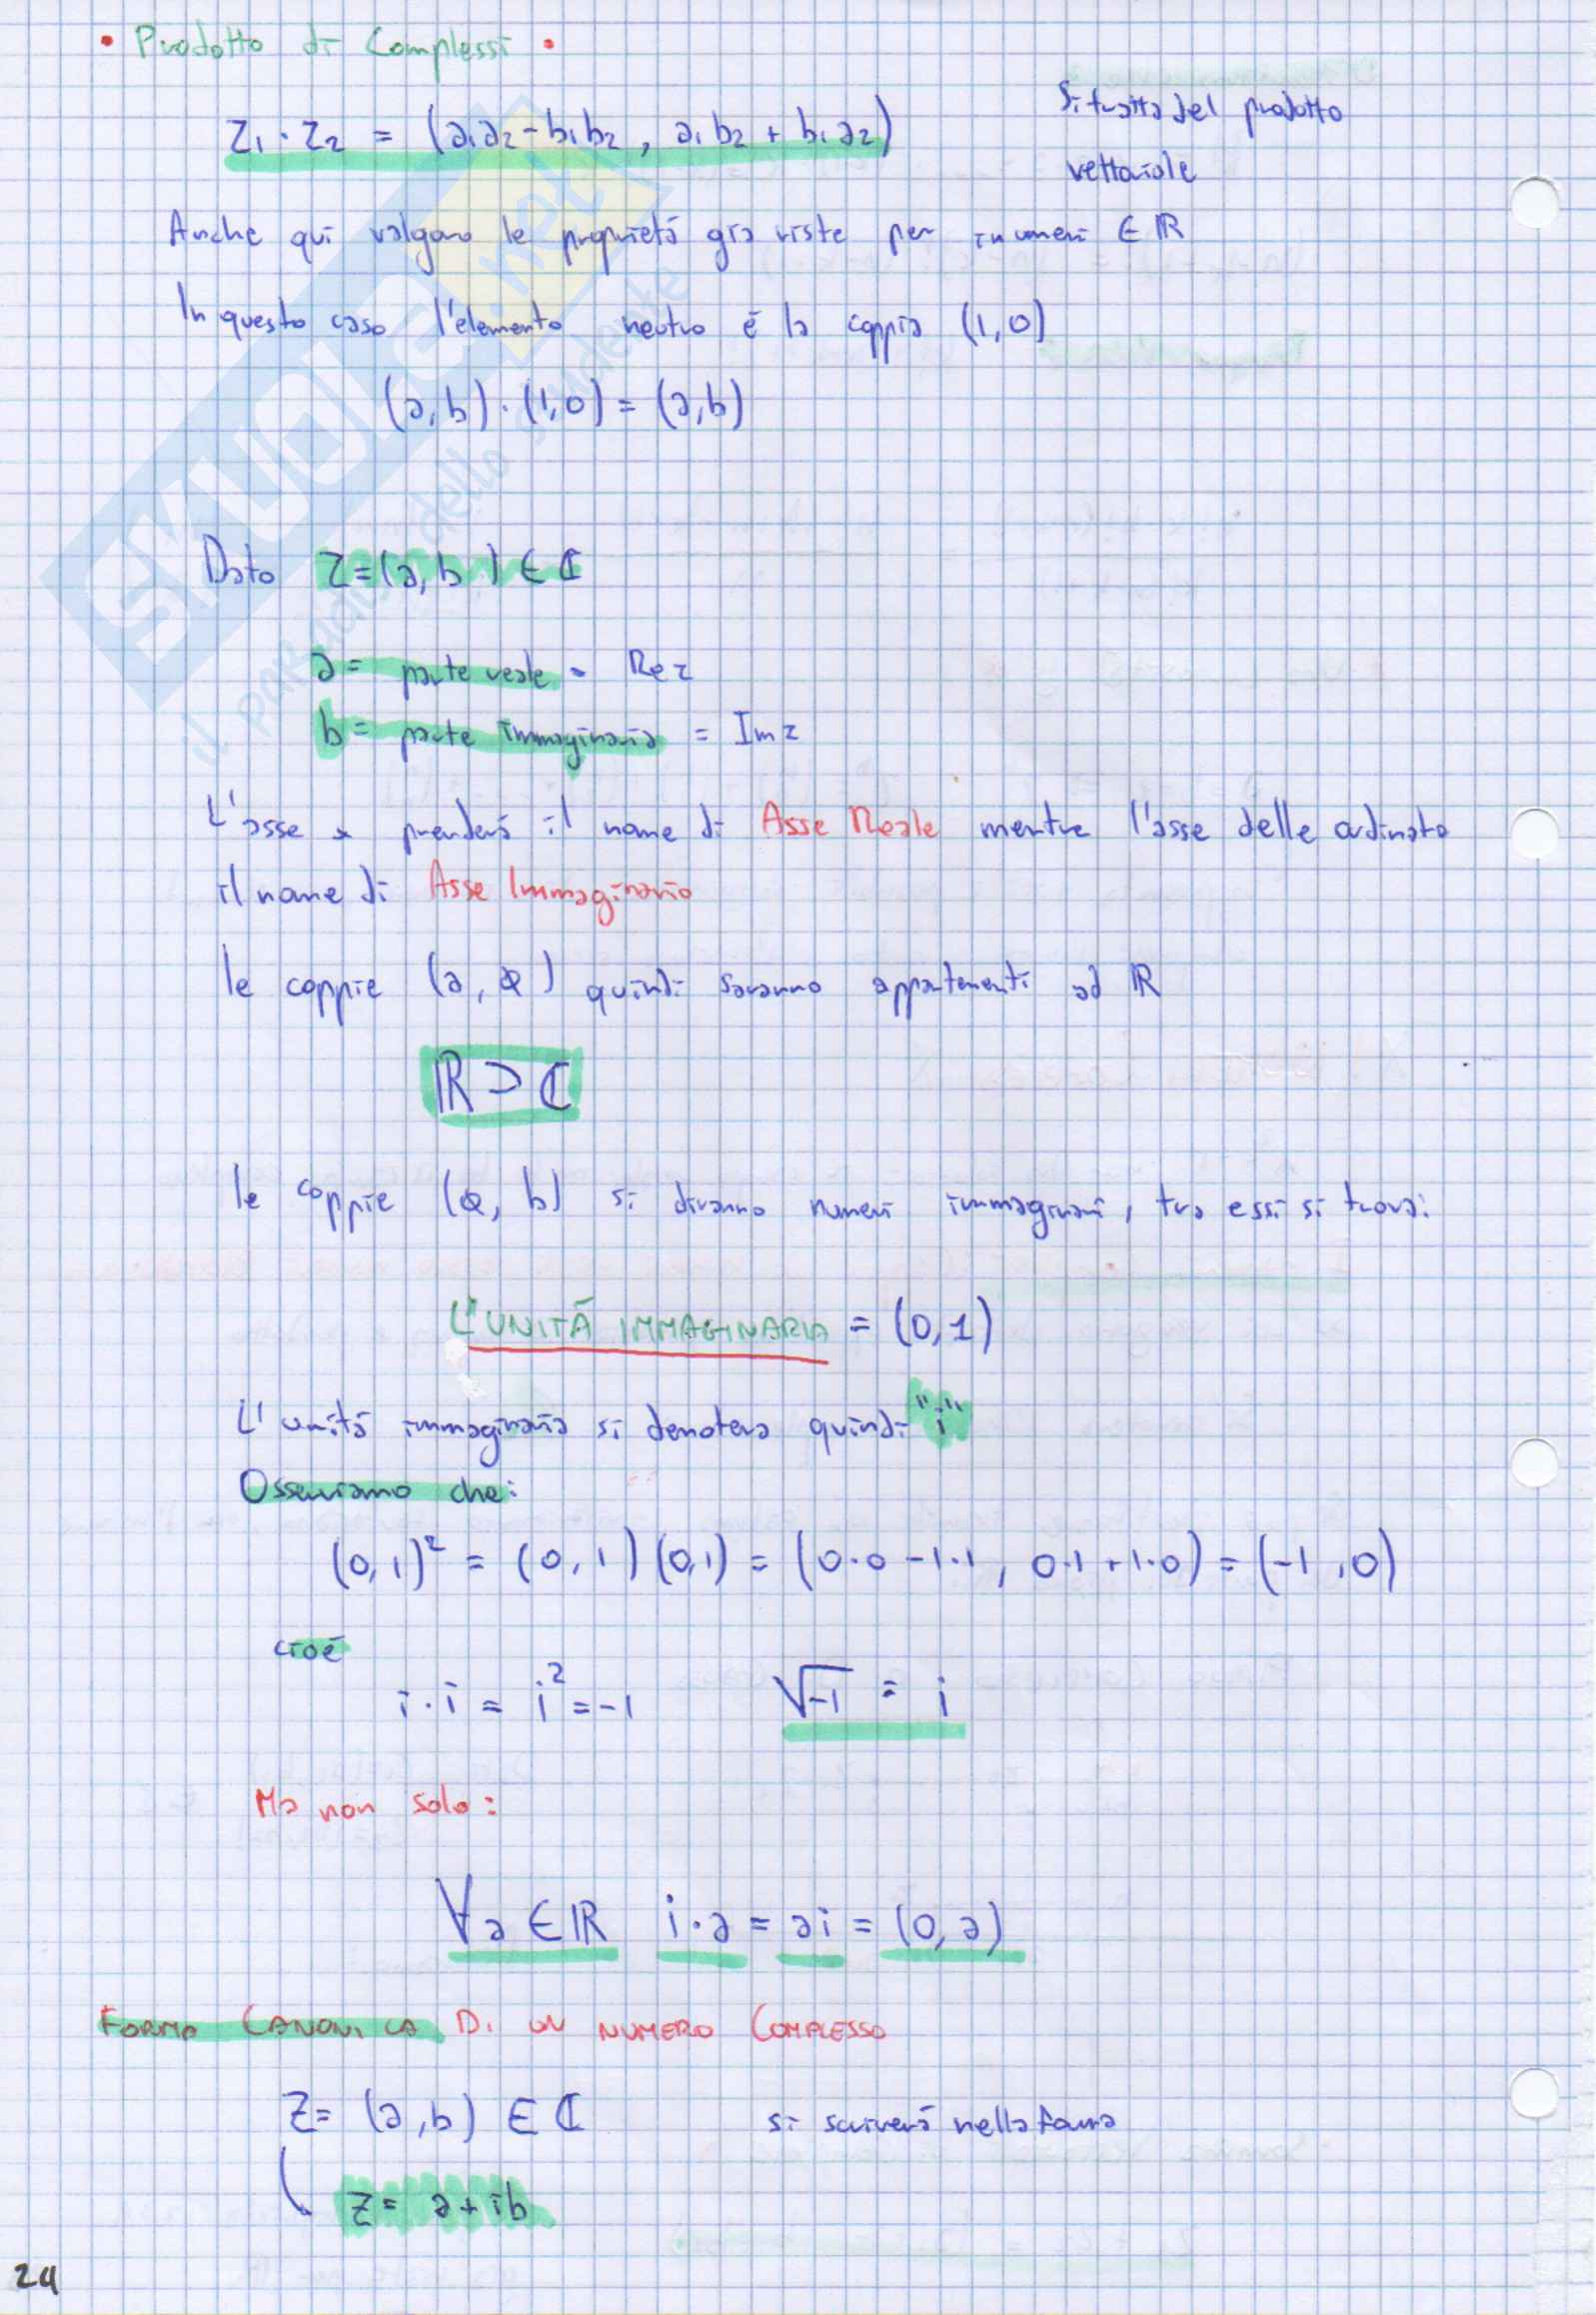 • Prodotto di Complessi •
Z₁ · Z₂ = (a₁a₂ - b₁b₂ , a₁b₂ + b₁a₂)
Si tratta del prodotto
vettoriale
Anche qui valgono le proprietá giá viste per i numeri ∈ ℝ
In questo caso l'elemento neutro é la coppia (1,0)
(a,b) · (1,0) = (a,b)
SKUOLA.net
il paradiso dello studente
Dato Z=(a,b) ∈ ℂ
a = parte reale = Re z
b = parte immaginaria = Im z
L'asse x prenderá il nome di Asse Reale mentre l'asse delle ordinate
il nome di Asse Immaginario
le coppie (a, 0) quindi saranno appartenenti ad ℝ
ℝ ⊃ ℂ
le coppie (0, b) si diranno numeri immaginari, tra essi si trova:
L'UNITÁ IMMAGINARIA = (0,1)
L'unitá immaginaria si denotera quindi "i"
Osserviamo che:
(0,1)² = (0,1)(0,1) = (0·0 - 1·1 , 0·1 + 1·0) = (-1,0)
cioé
i · i = i² = -1 √-1 = i
Ma non solo:
∀a ∈ ℝ i·a = ai = (0,a)
FORMA CANONICA DI UN NUMERO COMPLESSO
Z = (a,b) ∈ ℂ si scriverá nella forma
Z = a + ib
24